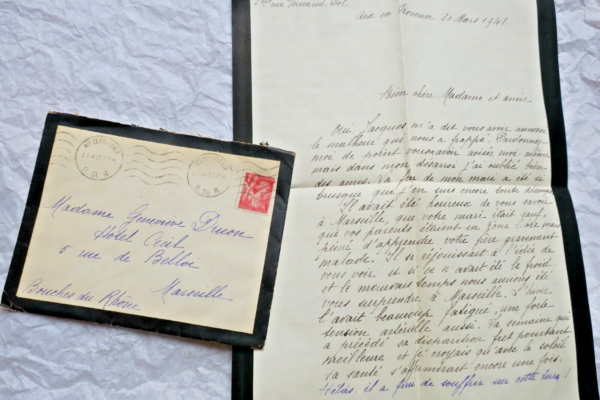 Madame Genevieve Druon
Hôtel Cécil
5 rue de Belloi
Marseille
Bouches du Rhône
Aix en Provence 30 Mars 1941
Bien chère Madame et amie
Oui Jacques m'a dit vous avoir annoncé
le malheur qui nous a frappé. Pardonnez
moi de ne point vous avoir avisée moi même
mais dans mon désarroi j'ai oublié bien
des amis. La fin de mon mari a été si
brusque que j'en suis encore toute
Il avait été heureux de vous savoir
à Marseille, que votre mari était sauf,
que vos parents étaient en zone libre mais
peiné d'apprendre votre père gravement
malade. Il se réjouissait à l'idée de
vous voir et si ce n'avait été le froid
et le mauvais temps nous aurions été
vous surprendre à Marseille. L'hiver
l'avait beaucoup fatigué, une forte
tension artérielle aussi. La semaine qui
a précédé sa disparition fut pourtant
meilleure et je croyais qu'avec le soleil
sa santé s'affirmirait encore une fois.
Hélas, il a fini de souffrir sur cette terre!